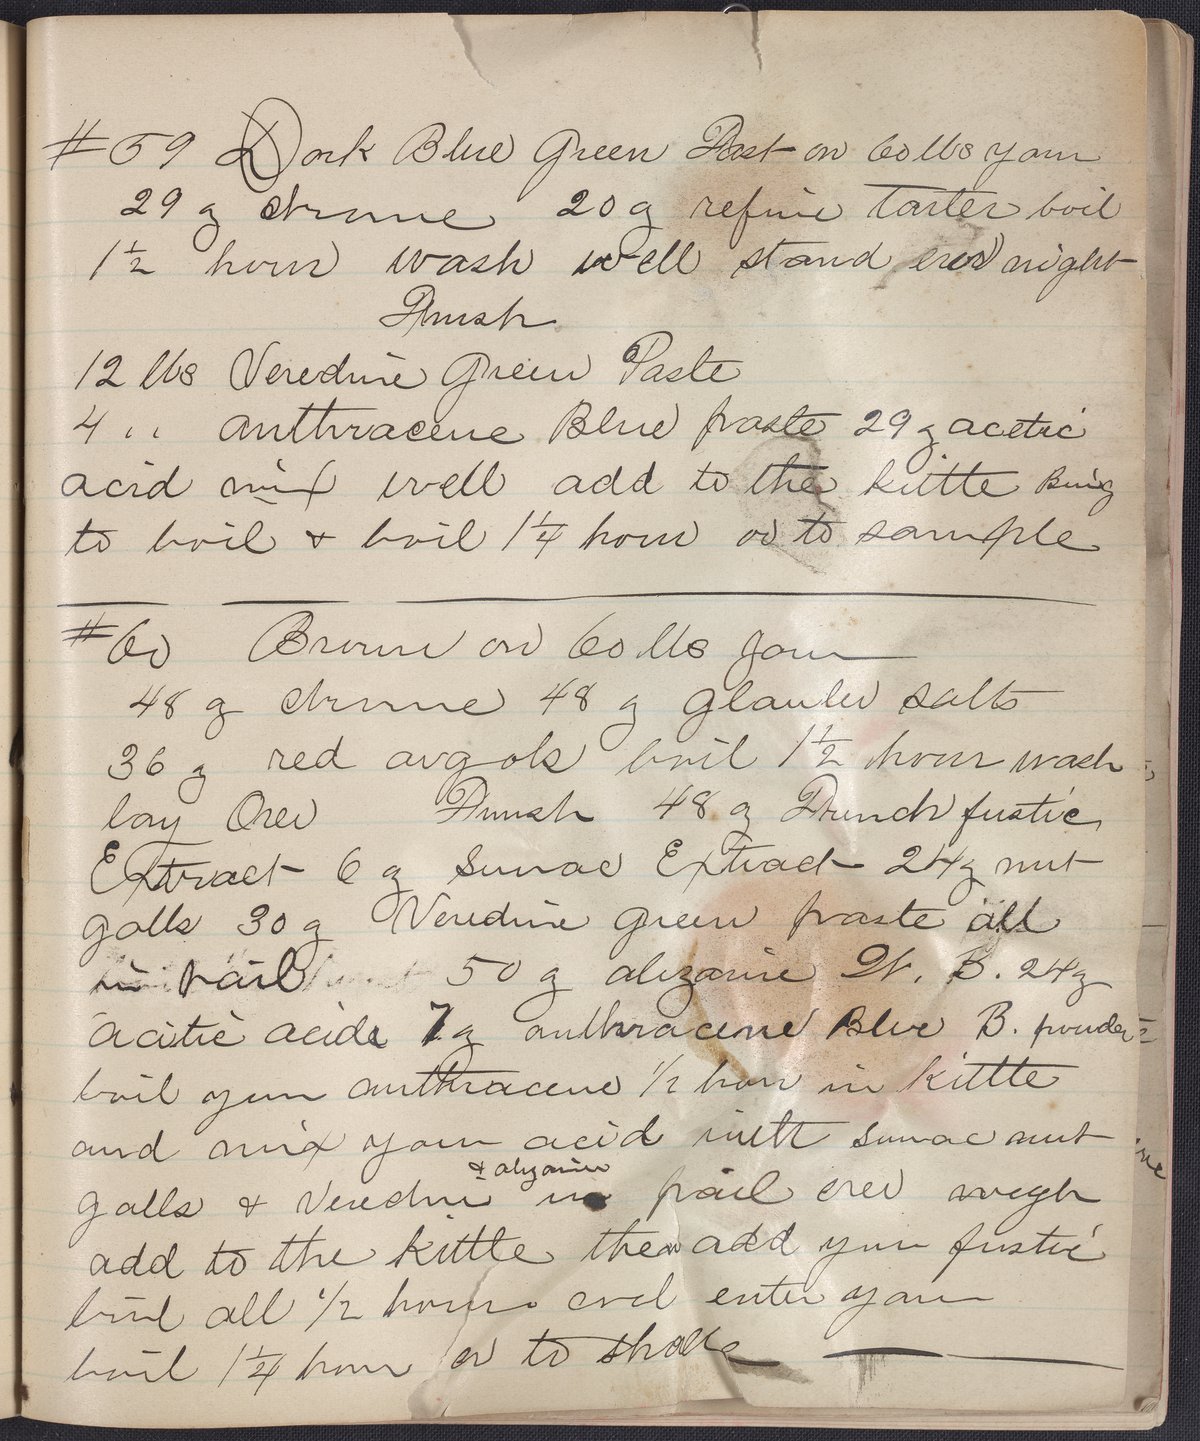 #59 Dark Blue Green Fast on 60 lbs yarn
29 g chrome 20 g refine tarter boil
1½ hour wash well stand over night
Finish
12 lbs Veredine Green Paste
4 " anthracene Blue paste 29 g acetic
acid mix well add to the kittle Bring
to boil & boil 1¼ hour or to sample
#60 Brown on 60 lbs yarn
48 g chrome 48 g glauber salts
36 g red argols boil 1½ hour wash
lay Over Finish 48 g fustic
Extract 6 g Sumac Extract 24 g nut
galls 30 g Veredine green paste all
in pail 50 g alizarine B. 24 g
acitic acide 7 g anthracene Blue B. powder
boil your anthracene ½ hour in kittle
and mix your acid with sumac nut
galls & Veredine in pail over
& alizarine
add to the kittle then add your fustic
boil all ½ hour enter yarn
boil 1¼ hour or to shade